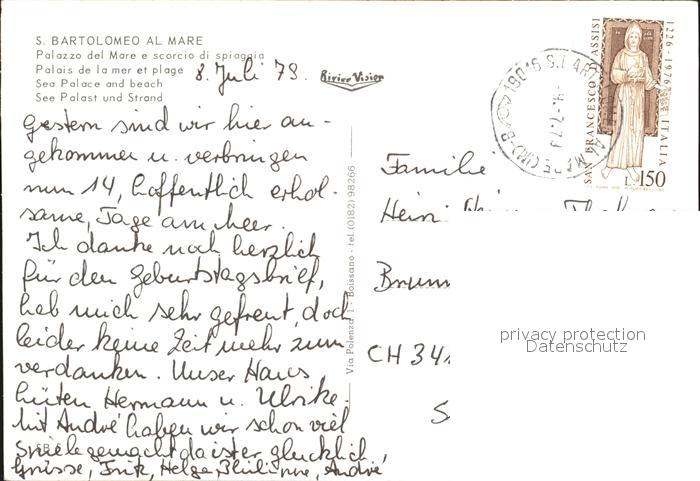 S. BARTOLOMEO AL MARE
Palazzo del Mare e scorcio di spiaggia
Palais de la mer et plage
Sea Palace and beach
See Palast und Strand
8. Juli 79.
Rivier Vision
Gestern sind wir hier an-
gekommen u. verbringen
nun 14, hoffentlich erhol-
same, Tage am Meer.
Ich danke noch herzlich
für den Geburtstagsbrief,
hab mich sehr gefreut, doch
leider keine Zeit mehr zum
verdanken. Unser Haus
hüten Hermann u. Ulrike.
Mit André haben wir schon viel
Spiele gemacht da ist er glücklich,
Grüsse, Fritz, Helga, Philippe, André
Via Polenza 1 - Boissano - tel. (0182) 98266
SAN FRANCESCO D'ASSISI
1226-1976
ITALIA
L. 150
18016 S. BART
AL MARE (IM)
Familie
Heini
Brunn
CH 341
S
privacy protection
Datenschutz